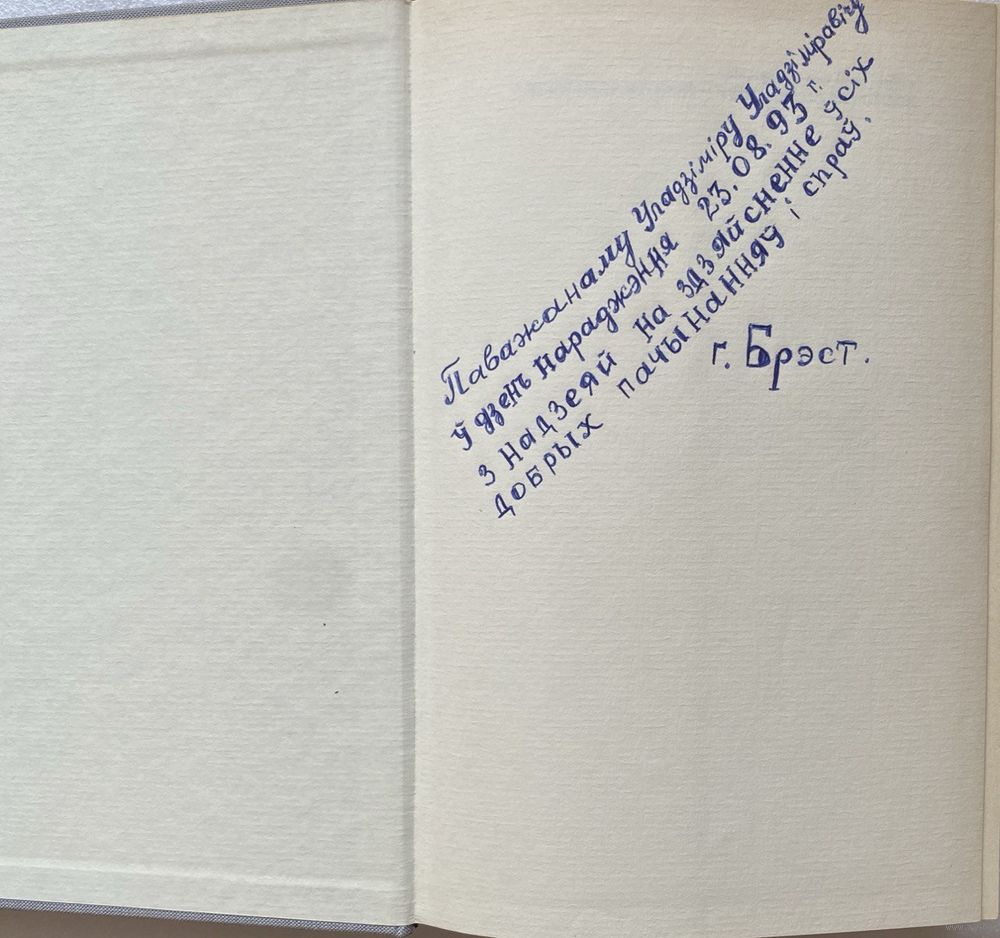 Паважанаму Уладзіміру Уладзіміравічу
ў дзень нараджэння 23.08.93 г.
з надзеяй на здзяйсненне ўсіх
добрых пачынанняў і спраў.
г. Брэст.